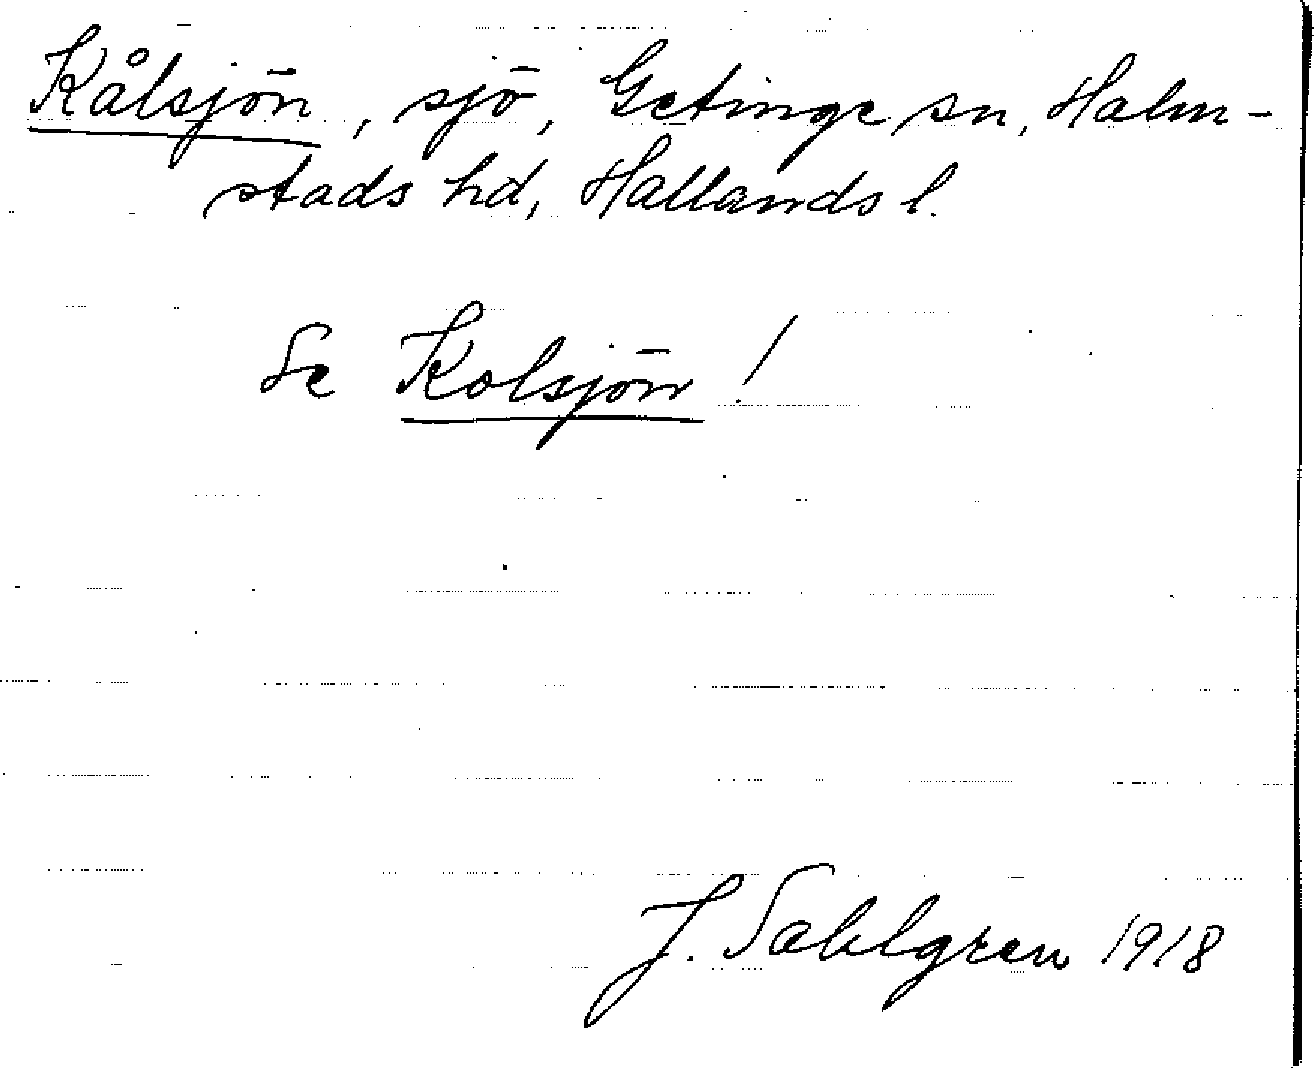 Kålsjön, sjö, Getinge sn, Halm-
stads hd, Hallands l.
Se Kolsjön!
J. Sahlgren 1918